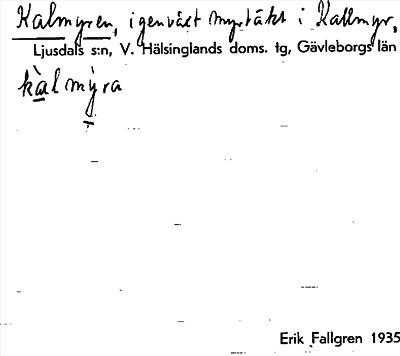 Kalmyren, igenväxt myrtäkt i Kallmyr,
Ljusdals s:n, V. Hälsinglands doms. tg, Gävleborgs län
kàlmỳra
Erik Fallgren 1935